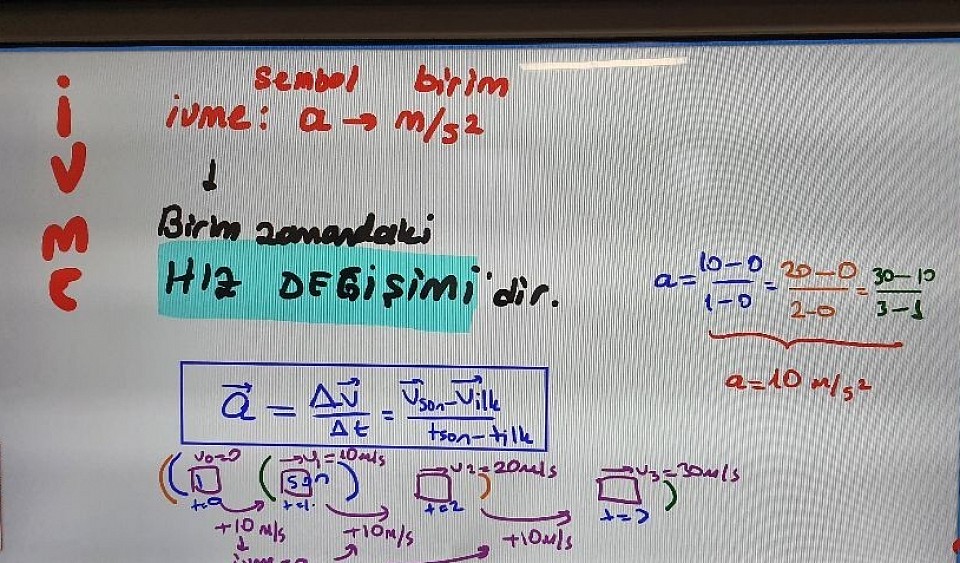 ivme
sembol birim
ivme: a → m/s²
↓
Birim zamandaki
HIZ DEĞİŞİMİ'dir.
a = 10-0/1-0 = 20-0/2-0 = 30-10/3-1
a=10 m/s²
a⃗ = Δv⃗/Δt = v⃗son-v⃗ilk/tson-tilk
v₀=0 →v₁=10m/s →v₂=20m/s →v₃=30m/s
t=0 t=1 t=2 t=3
+10 m/s +10m/s +10m/s